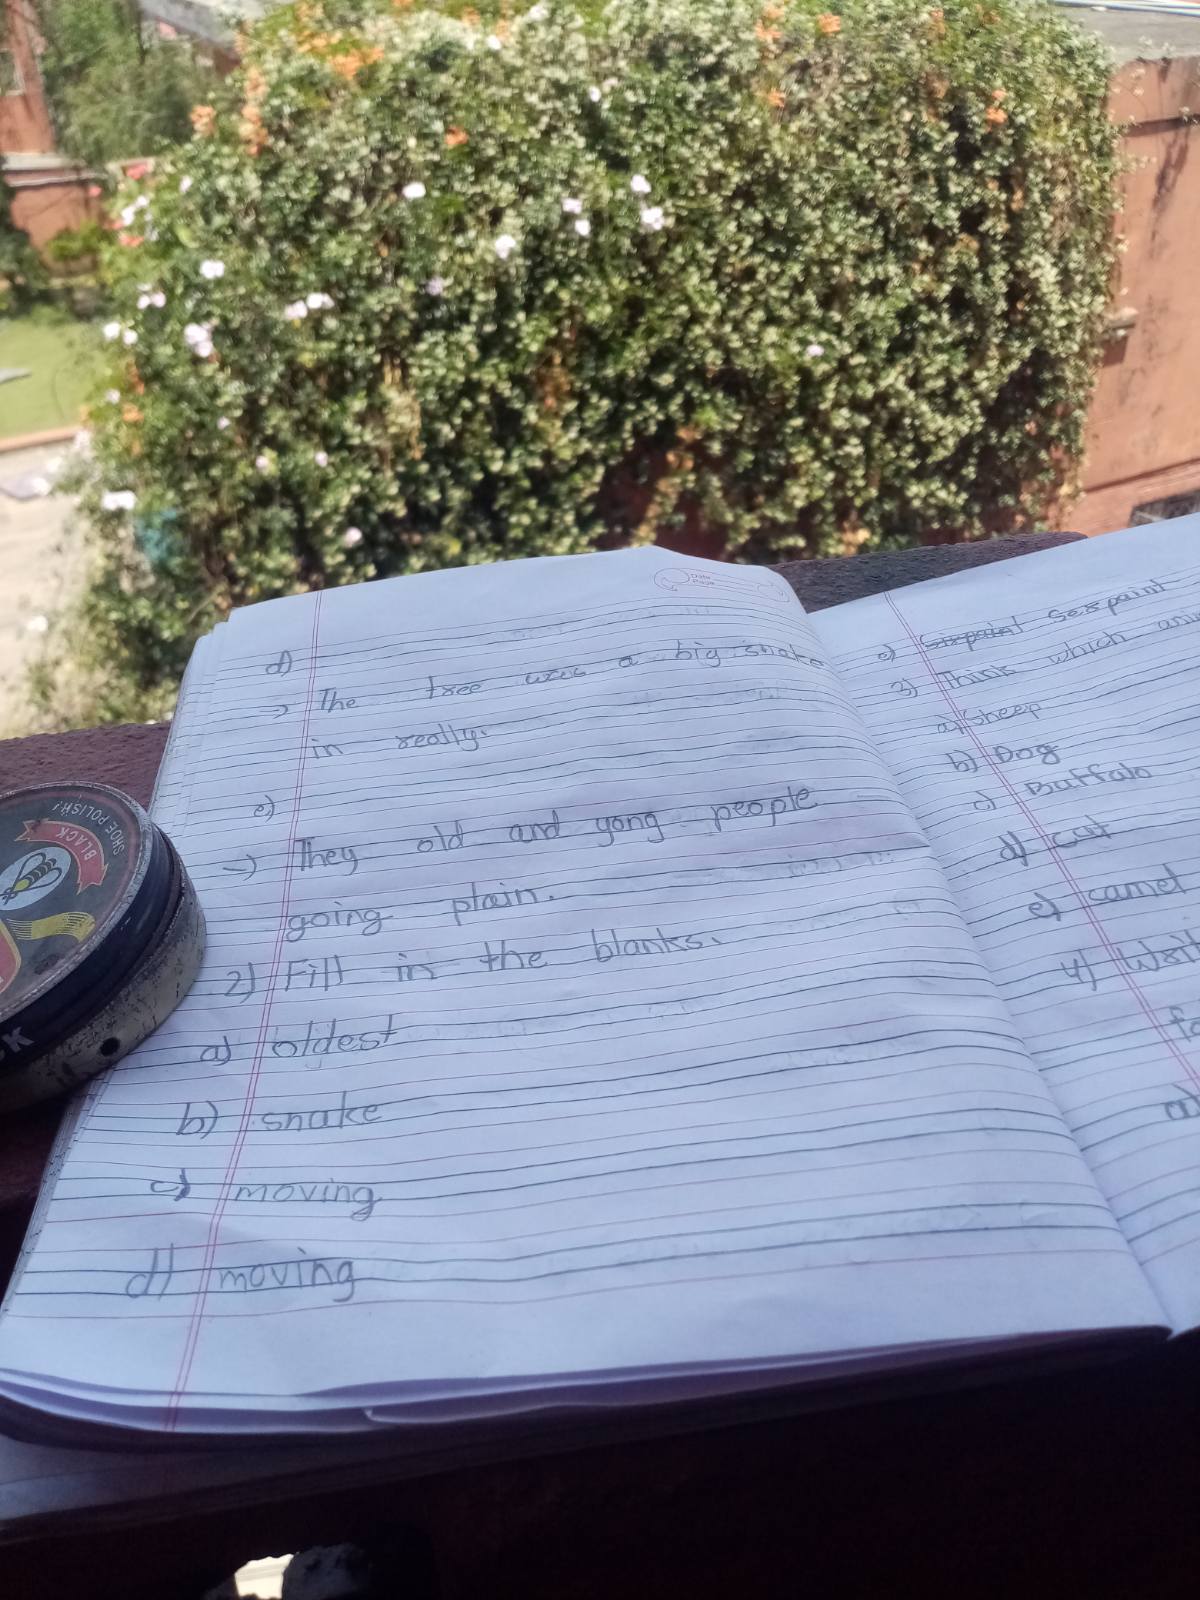 Date
Page
d)
→ The tree was a big snake
in really.
e)
→ They old and yong people
going plain.
2) Fill in the blanks.
a) oldest
b) snake
c) moving
d) moving
e) Serpaint
3) Think which
a) Sheep
b) Dog
c) Buffalo
d) cat
e) camel
4) Writ
a)
SHOE POLISH!
BLACK
CK